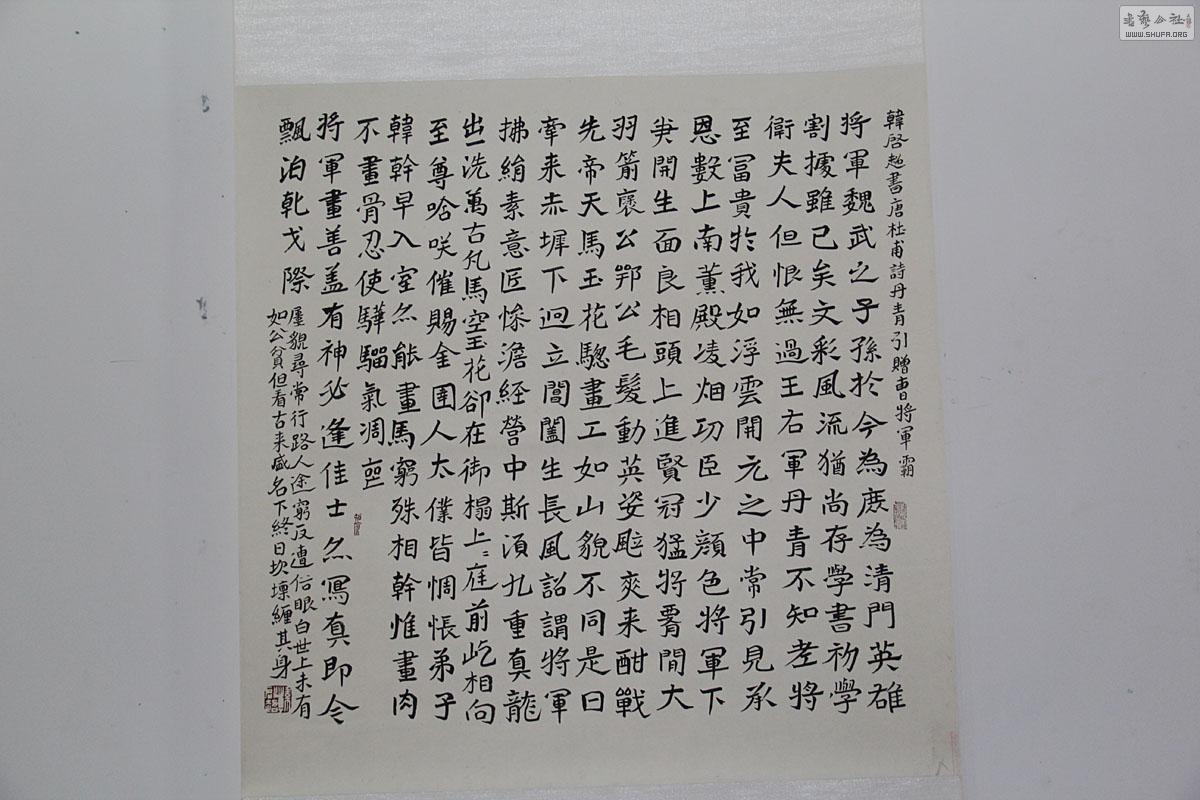 韓啓書唐杜甫詩丹青引贈曹將軍霸
將軍魏武之子孫於今為庶為清門英雄
割據雖已矣文彩風流猶尚存學書初學
衛夫人但恨無過王右軍丹青不知老將
至冨貴於我如浮雲開元之中常引見承
恩數上南薰殿凌烟功臣少顔色將軍下
筆開生面良相頭上進賢冠猛將腰間大
羽箭褒公鄂公毛髮動英姿颯爽来酣戰
先帝天馬玉花驄畫工如山貌不同是日
牽来赤墀下迥立閶闔生長風詔謂將軍
拂絹素意匠慘澹經營中斯須九重真龍
出一洗萬古凡馬空玉花卻在御榻上〻庭前屹相向
至尊含笑催賜金圉人太僕皆惆悵弟子
韓幹早入室亦能畫馬窮殊相幹惟畫肉
不畫骨忍使驊騮氣凋喪
將軍畫善盖有神必逢佳士亦寫真即令
飄泊乾戈際
屢貌尋常行路人途窮反遭俗眼白世上未有
如公貧但看古来盛名下終日坎壈纏其身
書藝公社
WWW.SHUFA.ORG